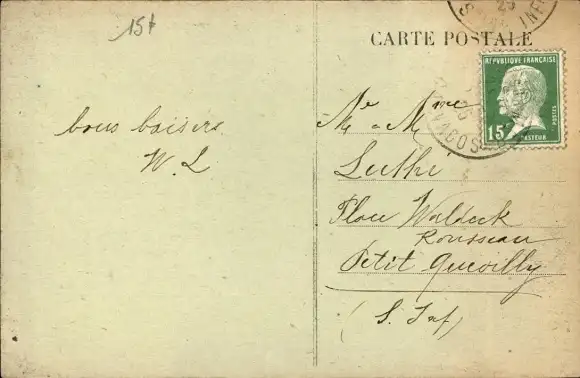 15t
CARTE POSTALE
25
S INF
RÉPUBLIQUE FRANÇAISE
15c
POSTES
PASTEUR
bons baisers
W. L
Mr & Mme
Luthé
Place Waldeck
Rousseau
Petit Quevilly
(S. Inf)